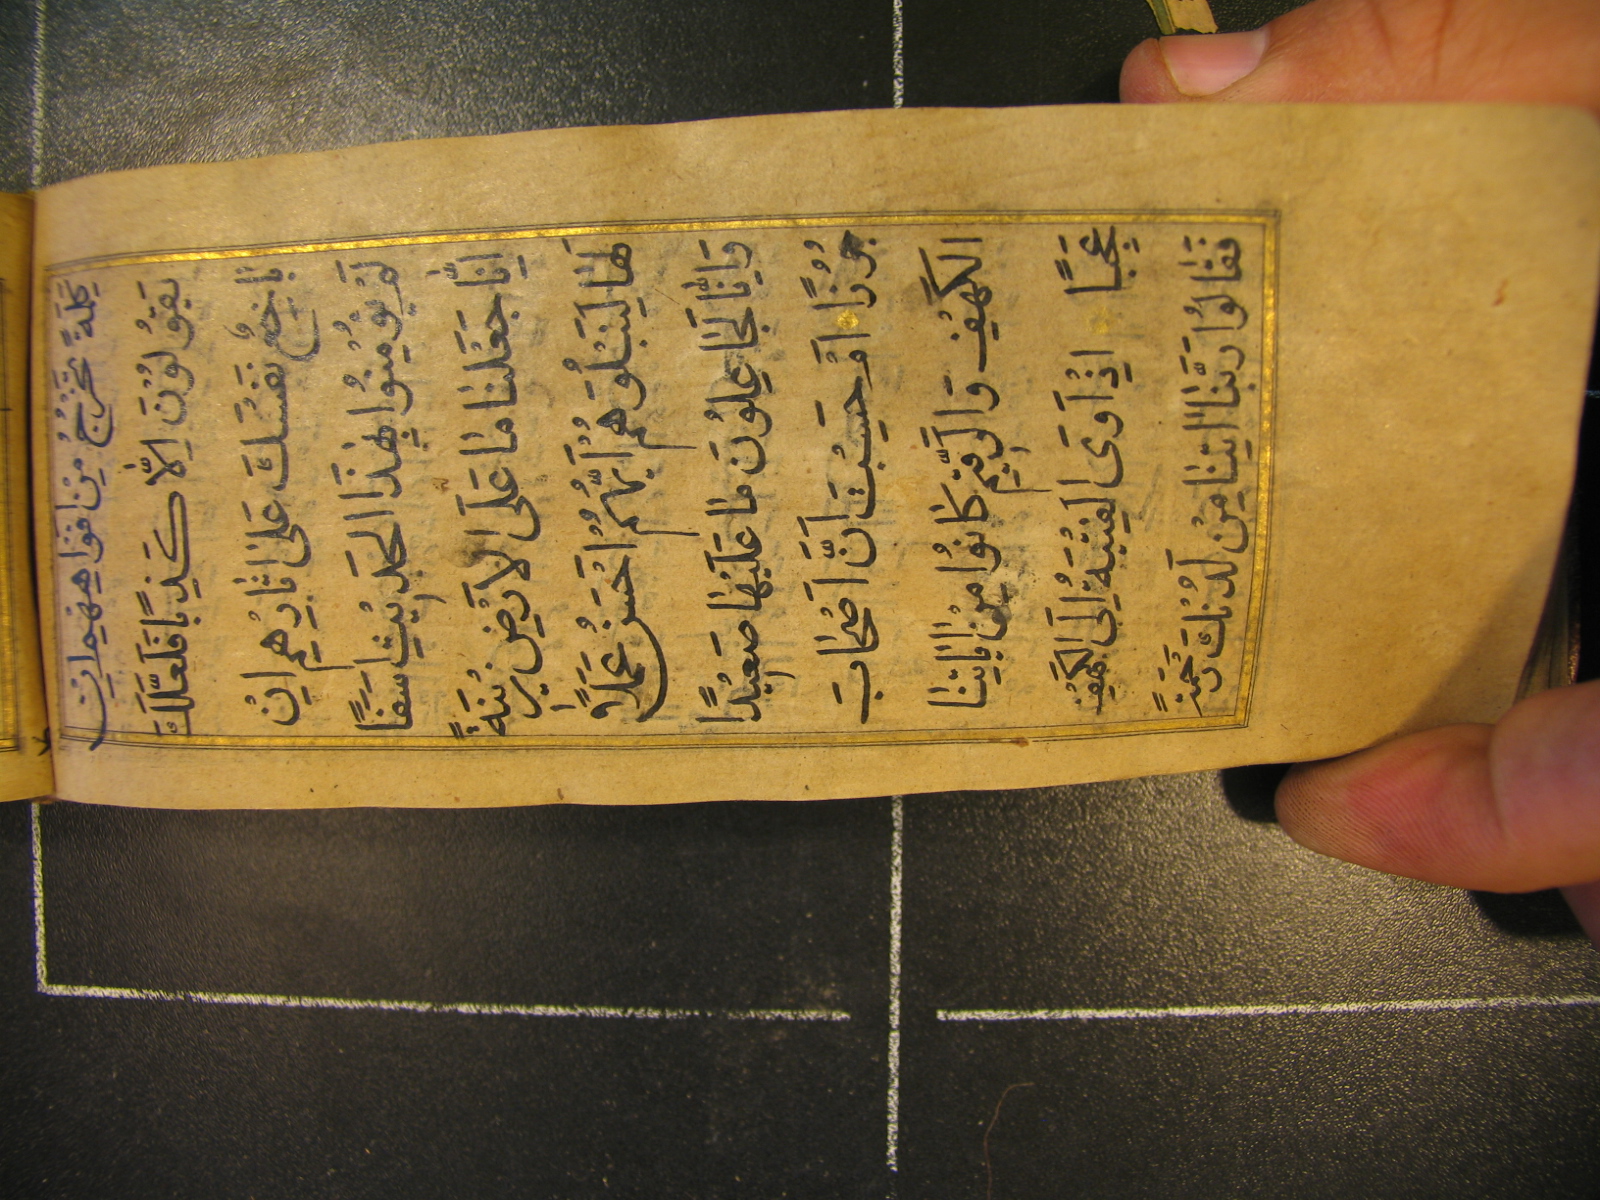 كَلِمَةً تَخْرُجُ مِنْ اَفْوَاهِهِمْ اِنْ
يَقُولُونَ اِلَّا كَذِبًا فَلَعَلَّكَ
بَاخِعٌ نَفْسَكَ عَلٰى اٰثَارِهِمْ اِنْ
لَمْ يُؤْمِنُوا بِهٰذَا الْحَدِيثِ اَسَفًا
اِنَّا جَعَلْنَا مَا عَلَى الْاَرْضِ زِينَةً
لَهَا لِنَبْلُوَهُمْ اَيُّهُمْ اَحْسَنُ عَمَلًا
وَاِنَّا لَجَاعِلُونَ مَا عَلَيْهَا صَعِيدًا
جُرُزًا اَمْ حَسِبْتَ اَنَّ اَصْحَابَ
الْكَهْفِ وَالرَّقِيمِ كَانُوا مِنْ اٰيَاتِنَا
عَجَبًا اِذْ اَوَى الْفِتْيَةُ اِلَى الْكَهْفِ
فَقَالُوا رَبَّنَا اٰتِنَا مِنْ لَدُنْكَ رَحْمَةً